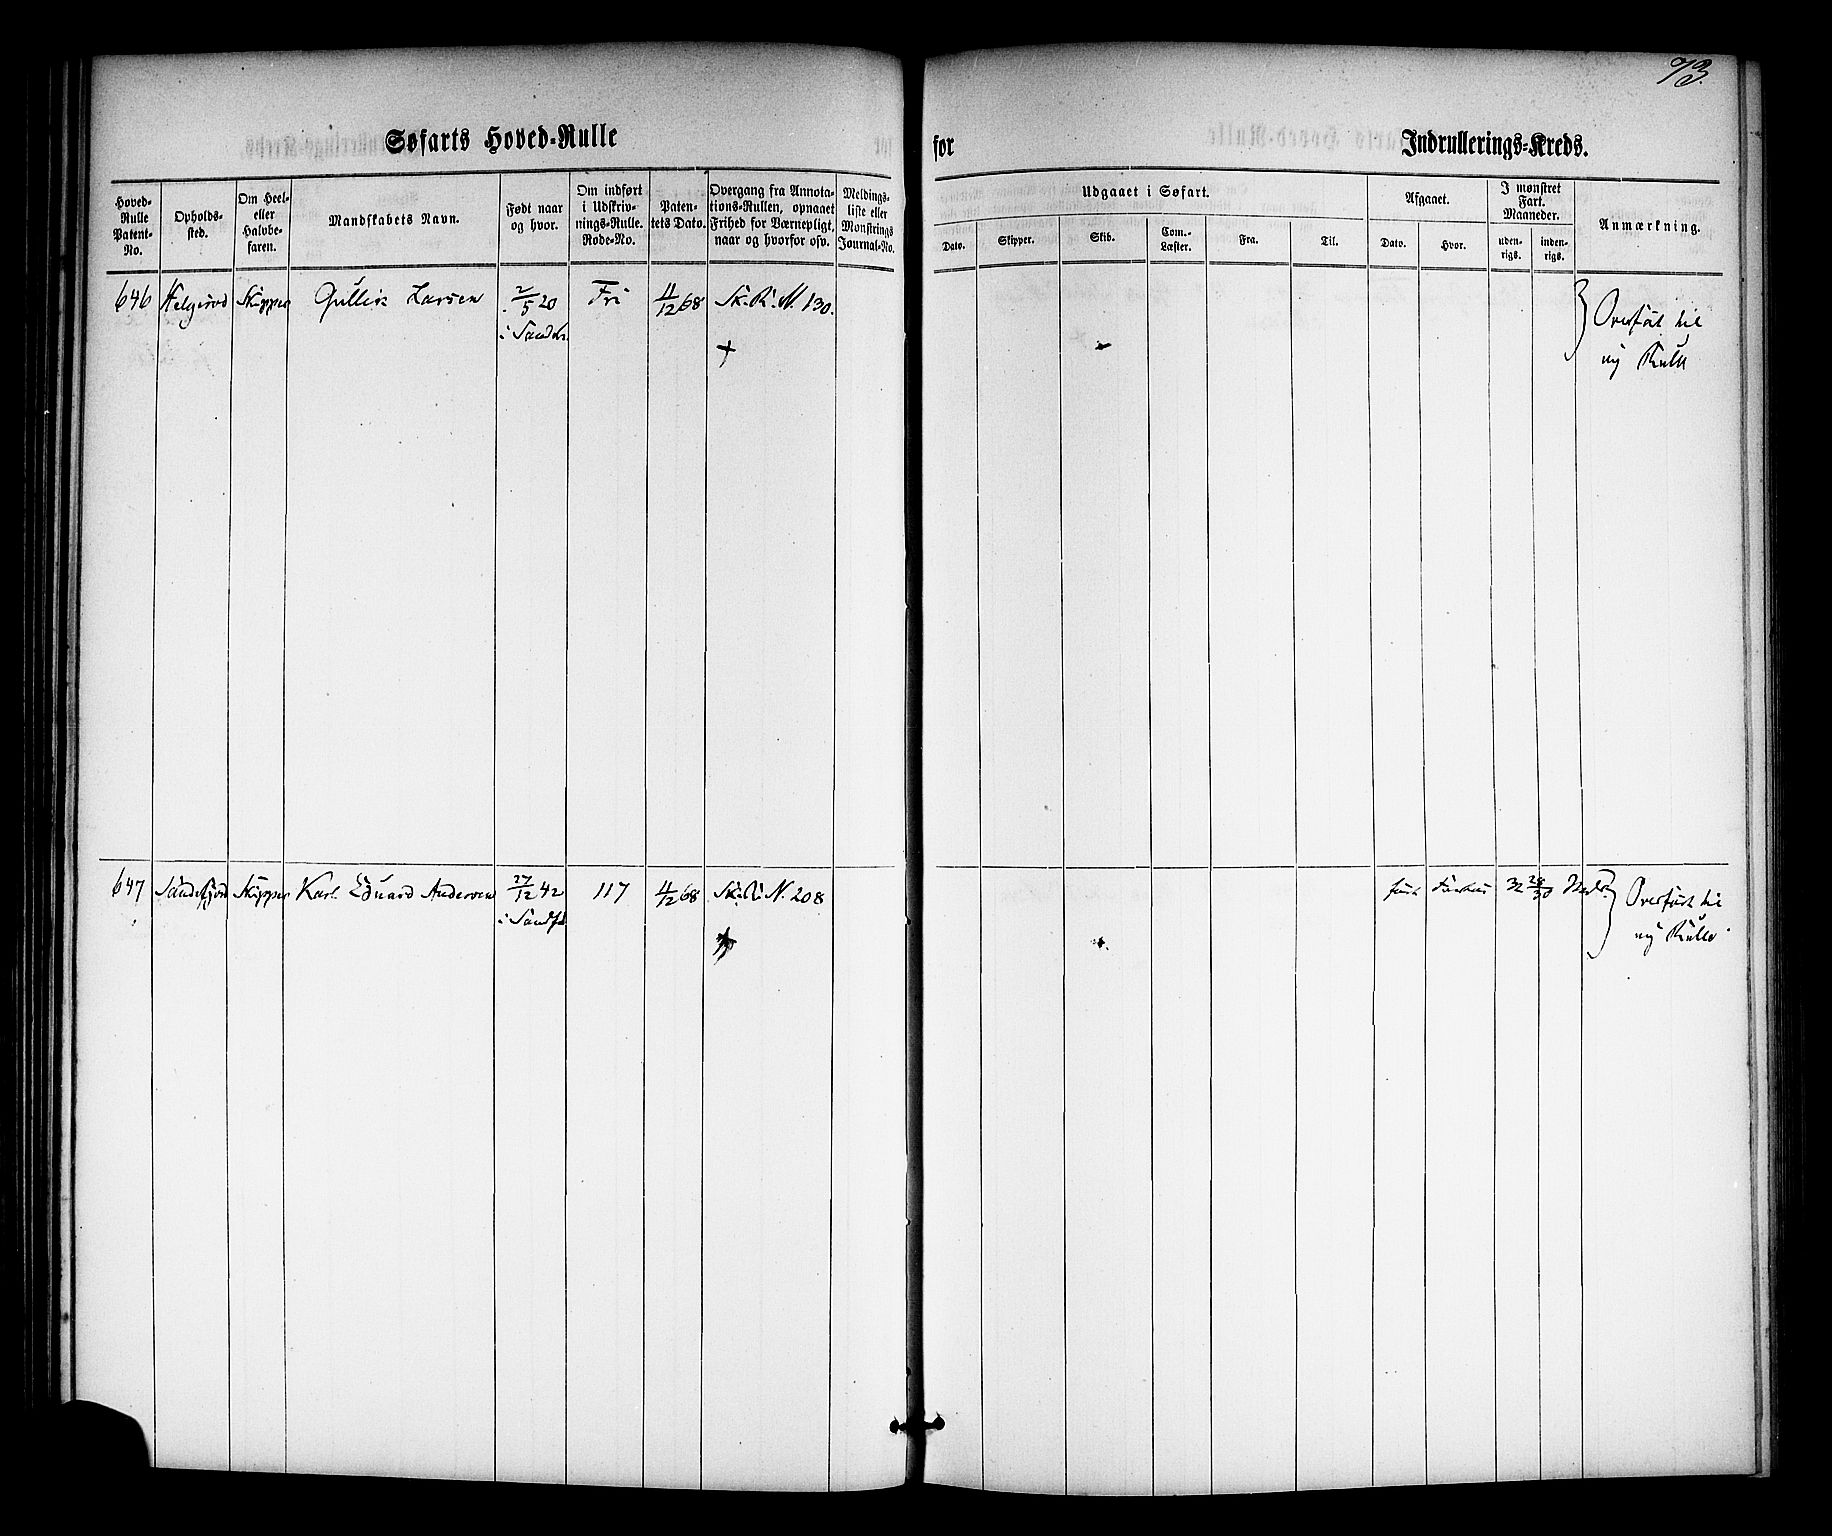 73.
Søfarts Hoved-Rulle
for
Indrullerings-Kreds.
Hoved-
Rulle
Patent-
No.
Opholds-
sted.
Om Heel-
eller
Halvbe-
faren.
Mandskabets Navn.
Født naar
og hvor.
Om indført
i Udskriv-
nings-Rulle.
Rode-No.
Paten-
tets Dato.
Overgang fra Annota-
tions-Rullen, opnaaet
Frihed for Værnepligt,
naar og hvorfor osv.
Meldings-
liste eller
Mønstrings
Journal-No.
Udgaaet i Søfart.
Dato.
Skipper.
Skib.
Com.-
Læster.
Fra.
Til.
Afgaaet.
Dato.
Hvor.
I mønstret
Fart.
Maaneder.
uden-
rigs.
inden-
rigs.
Anmærkning.
646 Helgerød Skipper Gullik Larsen 2/5 20 Fri 11/12 68 Sk. R. N. 130.
i Sandeh.
Overført til
ny Rulle
647 Sandefjord Skipper Karl Eduard Andersen 27/12 42 117 11/12 68 Sk. R. N. 208
i Sandfj.
32 28/30
Overført til
ny Rulle